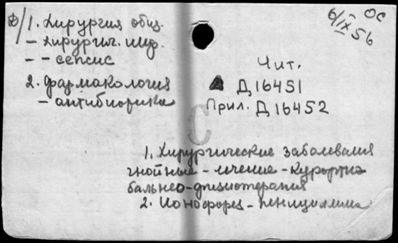 1. Хирургия общ.
- хирургич. инф.
- - сепсис
2. фармакология
- антибиотики
6/IX 56
ОС
Чит.
Д 16451
Прил. Д 16452
С
1. Хирургические заболевания
гнойные - лечение - курортно
бальнео-физиотерапия
2. Ионофорез - пенициллина